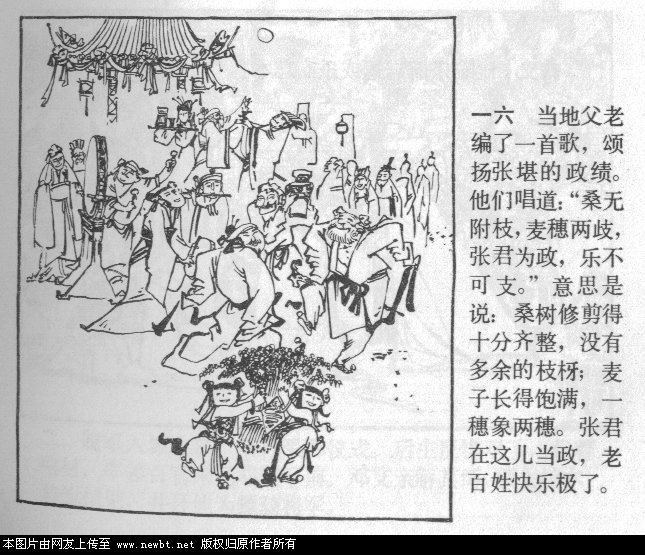 一六　当地父老
编了一首歌，颂
扬张堪的政绩。
他们唱道：“桑无
附枝，麦穗两歧，
张君为政，乐不
可支。”意思是
说：桑树修剪得
十分齐整，没有
多余的枝枒；麦
子长得饱满，一
穗象两穗。张君
在这儿当政，老
百姓快乐极了。
本图片由网友上传至 www.newbt.net 版权归原作者所有